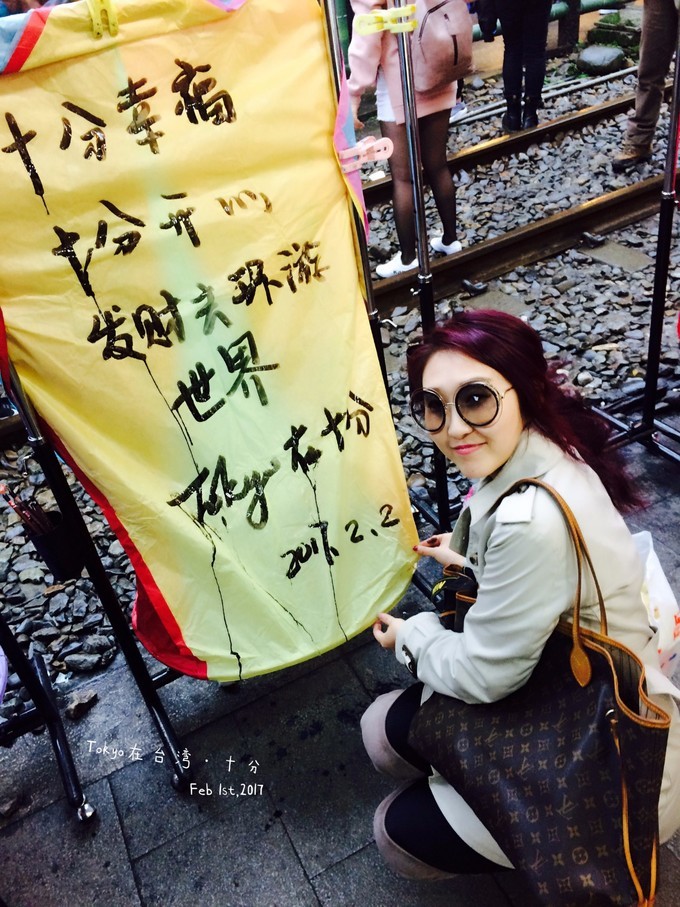 十分幸福
十分开心
发财去环游
世界
Tokyo在十分
2017.2.2
Tokyo在台湾·十分
Feb 1st,2017